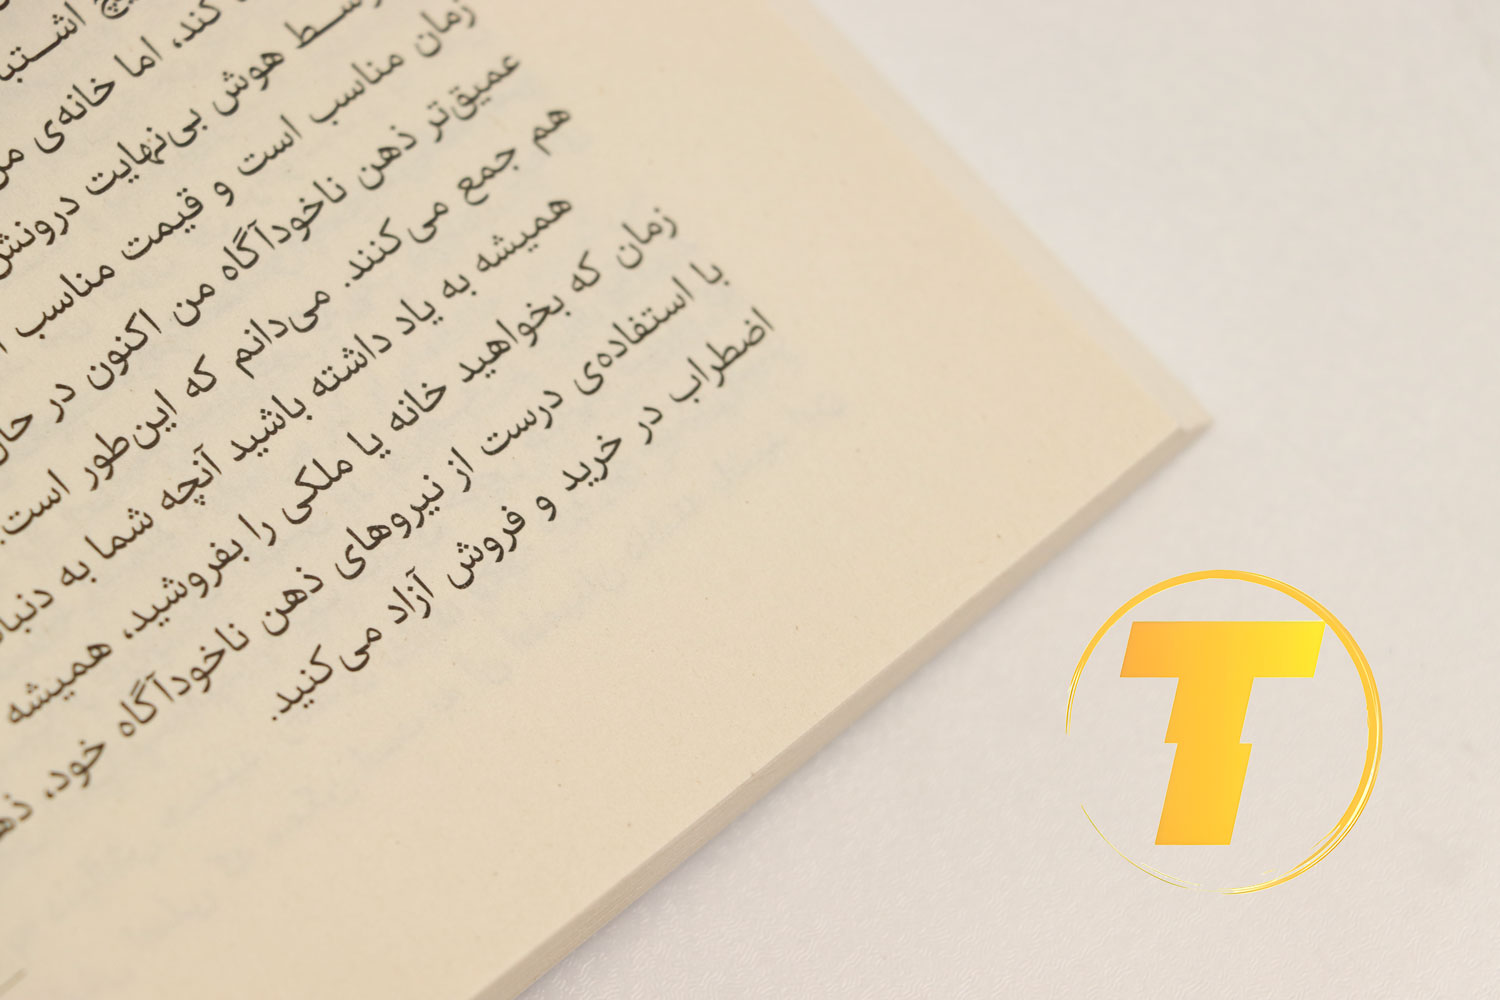 کند، اما خانه‌ی من
هوش بی‌نهایت درونش
زمان مناسب است و قیمت مناسب
عمیق‌تر ذهن ناخودآگاه من اکنون در حال
هم جمع می‌کنند. می‌دانم که این‌طور است.
همیشه به یاد داشته باشید آنچه شما به دنبال
زمان که بخواهید خانه یا ملکی را بفروشید، همیشه
با استفاده‌ی درست از نیروهای ذهن ناخودآگاه خود،
اضطراب در خرید و فروش آزاد می‌کنید.
T